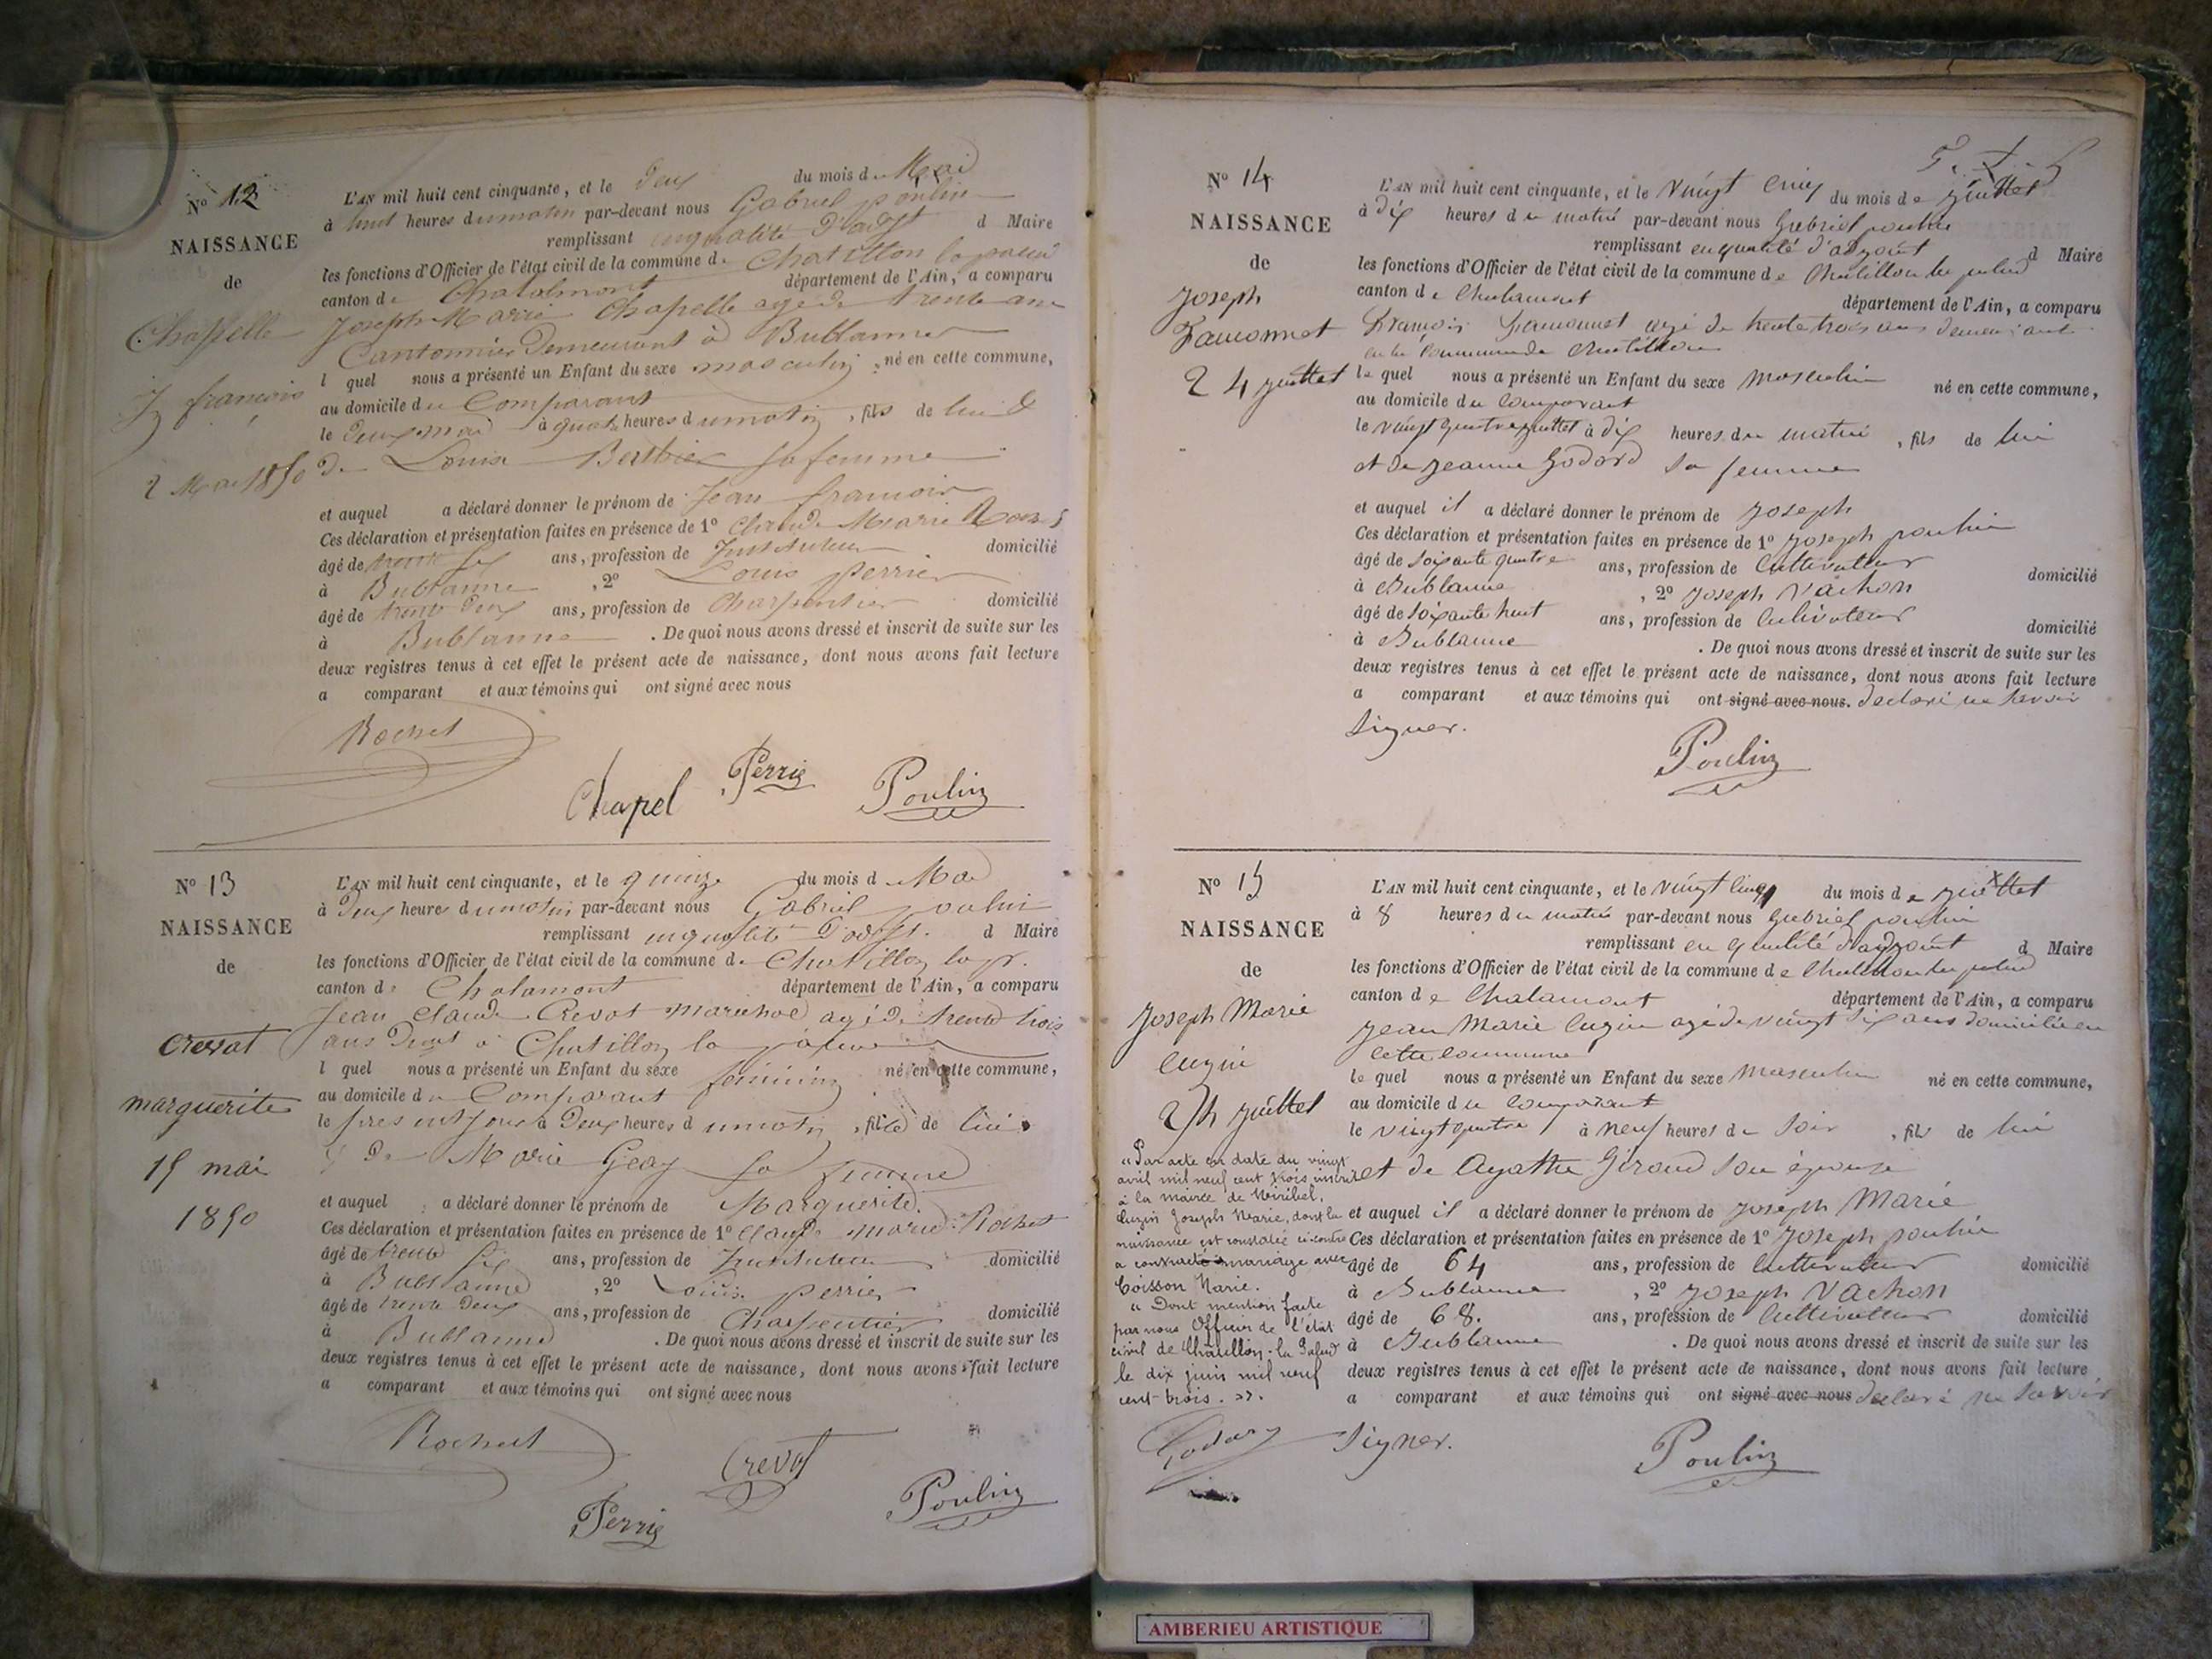 N° 12
NAISSANCE
de
Chapelle
J françois
2 Mai 1850
L'AN mil huit cent cinquante, et le deux du mois de Mai
à huit heures du matin par-devant nous Gabriel poulin
remplissant en qualité d'adjt d Maire
les fonctions d'Officier de l'état civil de la commune de Chatillon la palud
canton de Chalamont département de l'Ain, a comparu
Joseph Marie Chapelle agé de trente ans
Cantonnier Demeurant à Bublanne
l quel nous a présenté un Enfant du sexe masculin, né en cette commune,
au domicile du Comparant
le deux mai à quatre heures du matin, fils de lui &
De Louise Berthier sa femme
et auquel a déclaré donner le prénom de Jean françois
Ces déclaration et présentation faites en présence de 1° Claude Marie Rochet
âgé de trente six ans, profession de Instituteur domicilié
à Bublanne, 2° Louis perrier
âgé de trente deux ans, profession de Charpentier domicilié
à Bublanne. De quoi nous avons dressé et inscrit de suite sur les
deux registres tenus à cet effet le présent acte de naissance, dont nous avons fait lecture
a comparant et aux témoins qui ont signé avec nous
Rochet
Chapel Perrie Poulin
N° 13
NAISSANCE
de
Crevat
marguerite
15 mai
1850
L'AN mil huit cent cinquante, et le quinze du mois d Mai
à Deux heures du matin par-devant nous Gabriel poulin
remplissant en qualité d'adjt. d Maire
les fonctions d'Officier de l'état civil de la commune de Chatillon la p.
canton de Chalamont département de l'Ain, a comparu
Jean Claude Crevat maréchal agé de trente trois
ans Dent à Chatillon la palud
l quel nous a présenté un Enfant du sexe féminin né en cette commune,
au domicile du Comparant
le present jour à Deux heures du matin, fille de lui
& De Marie Geay sa femme
et auquel a déclaré donner le prénom de Marguerite.
Ces déclaration et présentation faites en présence de 1° Claude marie Rochet
âgé de trente six ans, profession de Instituteur domicilié
à Bublanne, 2° Louis perrier
âgé de trente deux ans, profession de Charpentier domicilié
à Bublanne. De quoi nous avons dressé et inscrit de suite sur les
deux registres tenus à cet effet le présent acte de naissance, dont nous avons fait lecture
a comparant et aux témoins qui ont signé avec nous
Rochet Crevat
Perrie Poulin
N° 14
NAISSANCE
de
Joseph
24 juillet
L'AN mil huit cent cinquante, et le vingt cinq du mois de juillet
à dix heures du matin par-devant nous Gabriel poulin
remplissant en qualité d'adjoint d Maire
les fonctions d'Officier de l'état civil de la commune de Chatillon la palud
canton de Chalamont département de l'Ain, a comparu
François agé de trente trois ans demeurant
en la commune de Chatillon
le quel nous a présenté un Enfant du sexe masculin né en cette commune,
au domicile du comparant
le vingt quatre juillet à dix heures du matin, fils de lui
et de jeanne Godard sa femme
et auquel il a déclaré donner le prénom de joseph
Ces déclaration et présentation faites en présence de 1° joseph poulin
âgé de soixante quatre ans, profession de Cultivateur domicilié
à Bublanne, 2° joseph Vachon
âgé de soixante huit ans, profession de Cultivateur domicilié
à Bublanne. De quoi nous avons dressé et inscrit de suite sur les
deux registres tenus à cet effet le présent acte de naissance, dont nous avons fait lecture
a comparant et aux témoins qui ont signé avec nous. declaré ne savoir
signer.
Poulin
N° 15
NAISSANCE
de
Joseph Marie
Cuzin
24 juillet
"Par acte en date du vingt
avril mil neuf cent trois, inscrit
à la mairie de Miribel,
Cuzin Joseph Marie, dont la
naissance est constatée ci-contre
a contracté mariage avec
Coisson Marie.
"Dont mention faite
par nous Officier de l'état
civil de Chatillon-la-Palud
le dix juin mil neuf
cent trois.".
Godard
L'AN mil huit cent cinquante, et le vingt cinq du mois de juillet
à 8 heures du matin par-devant nous Gabriel poulin
remplissant en qualité d'adjoint d Maire
les fonctions d'Officier de l'état civil de la commune de Chatillon la palud
canton de Chalamont département de l'Ain, a comparu
jean Marie Cuzin agé de vingt six ans domicilié en
cette commune
le quel nous a présenté un Enfant du sexe masculin né en cette commune,
au domicile du comparant
le vingt quatre à neuf heures du soir, fils de lui
et de Agathe Giroud son épouse
et auquel il a déclaré donner le prénom de joseph Marie
Ces déclaration et présentation faites en présence de 1° joseph poulin
âgé de 64 ans, profession de Cultivateur domicilié
à Bublanne, 2° joseph Vachon
âgé de 68. ans, profession de Cultivateur domicilié
à Bublanne. De quoi nous avons dressé et inscrit de suite sur les
deux registres tenus à cet effet le présent acte de naissance, dont nous avons fait lecture
a comparant et aux témoins qui ont signé avec nous declaré ne savoir
signer.
Poulin
AMBERIEU ARTISTIQUE